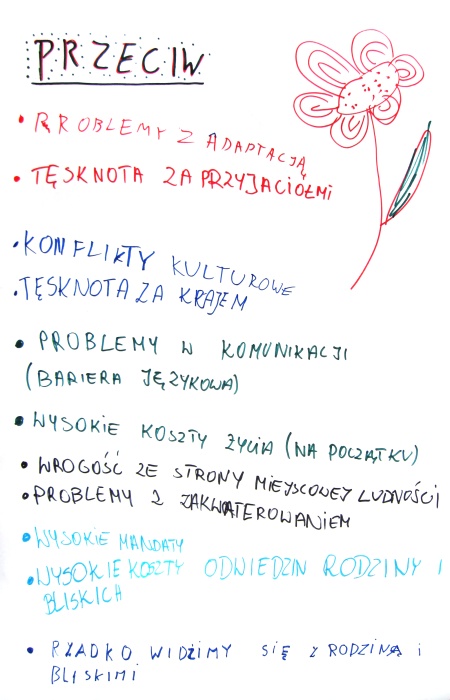 PRZECIW
• RROBLEMY Z ADAPTACJĄ
• TĘSKNOTA ZA PRZYJACIÓŁMI
• KONFLIKTY KULTUROWE
• TĘSKNOTA ZA KRAJEM
• PROBLEMY W KOMUNIKACJI
(BARIERA JĘZYKOWA)
• WYSOKIE KOSZTY ŻYCIA (NA POCZĄTKU)
• WROGOŚĆ ZE STRONY MIEJSCOWEJ LUDNOŚCI
• PROBLEMY Z ZAKWATEROWANIEM
• WYSOKIE MANDATY
• WYSOKIE KOSZTY ODWIEDZIN RODZINY I
BLISKICH
• RZADKO WIDZIMY SIĘ Z RODZINĄ i
BLISKIMI